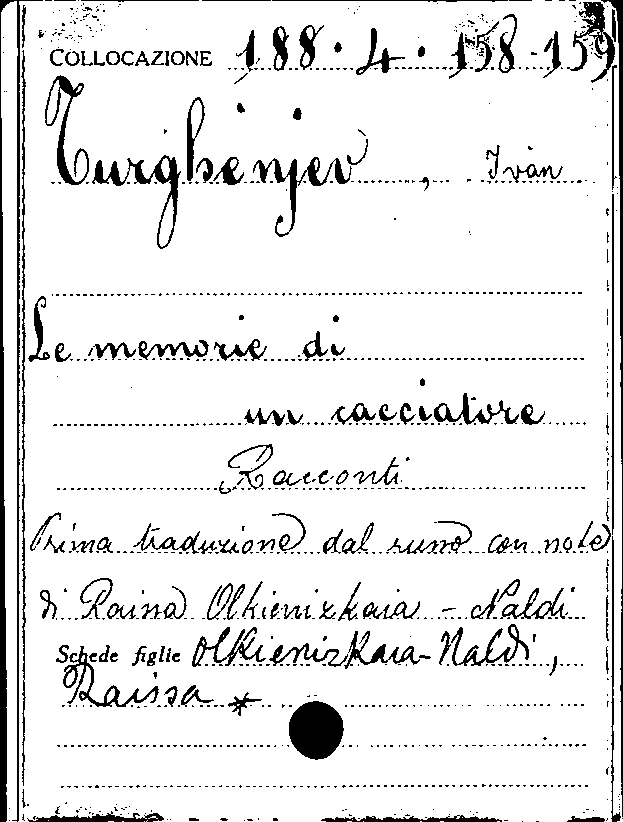 COLLOCAZIONE 188.4.158-159
Turghenjev, Ivàn
Le memorie di
un cacciatore
Racconti
Prima traduzione dal russo con note
di Raissa Olkienizkaia - Naldi
Schede figlie Olkienizkaia-Naldi,
Raissa *